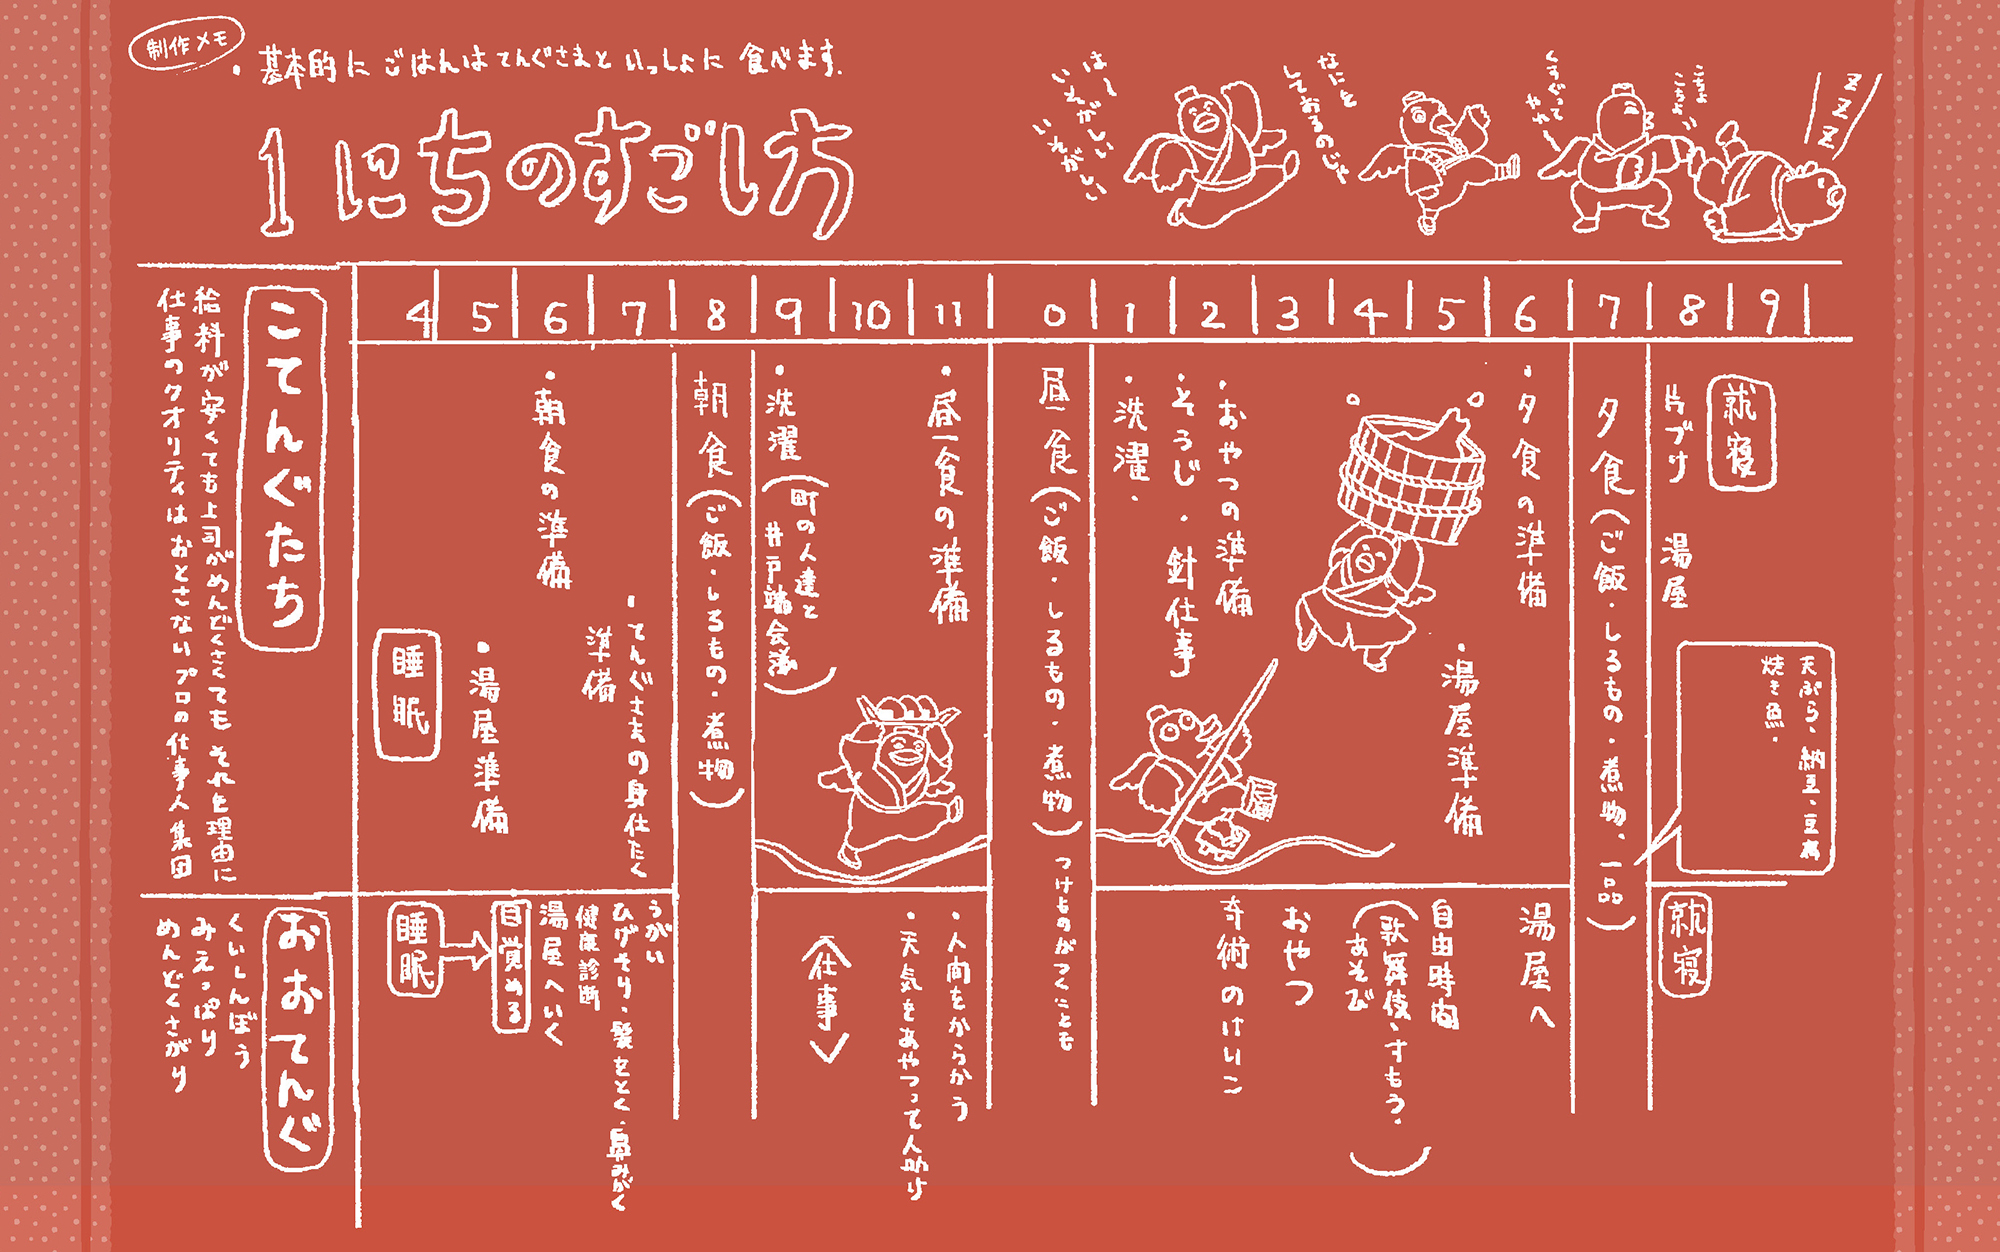 制作メモ
・基本的に ごはんは てんぐさまと いっしょに 食べます.
1にちのすごし方
はー
いそがしい
いそがしい
なにを
しておるのじゃ
くすぐって
やれ〜
こちょ
こちょ
ZZZ
4 5 6 7 8 9 10 11 0 1 2 3 4 5 6 7 8 9
こてんぐたち
給料が安くても上司がめんどくさくても それを理由に
仕事のクオリティはおとさないプロの仕事人集団
睡眠
・湯屋準備
・朝食の準備
・てんぐさまの身仕たく
準備
朝食(ご飯・しるもの・煮物)
・洗濯(町の人達と
井戸端会議)
・昼食の準備
昼食(ご飯・しるもの・煮物)つけものがつくことも
・洗濯・
・そうじ・針仕事
・おやつの準備
・湯屋準備
・夕食の準備
夕食(ご飯・しるもの・煮物、一品)
天ぷら、納豆、豆腐
焼き魚・
片づけ 湯屋
就寝
おおてんぐ
くいしんぼう
みえっぱり
めんどくさがり
睡眠
目覚める
湯屋へいく
健康診断
ひげそり・髪をとく・鼻みがく
うがい
仕事
・天気をあやつって人助け
・人間をからかう
奇術のけいこ
おやつ
自由時間
(歌舞伎・すもう・
あそび)
湯屋へ
就寝